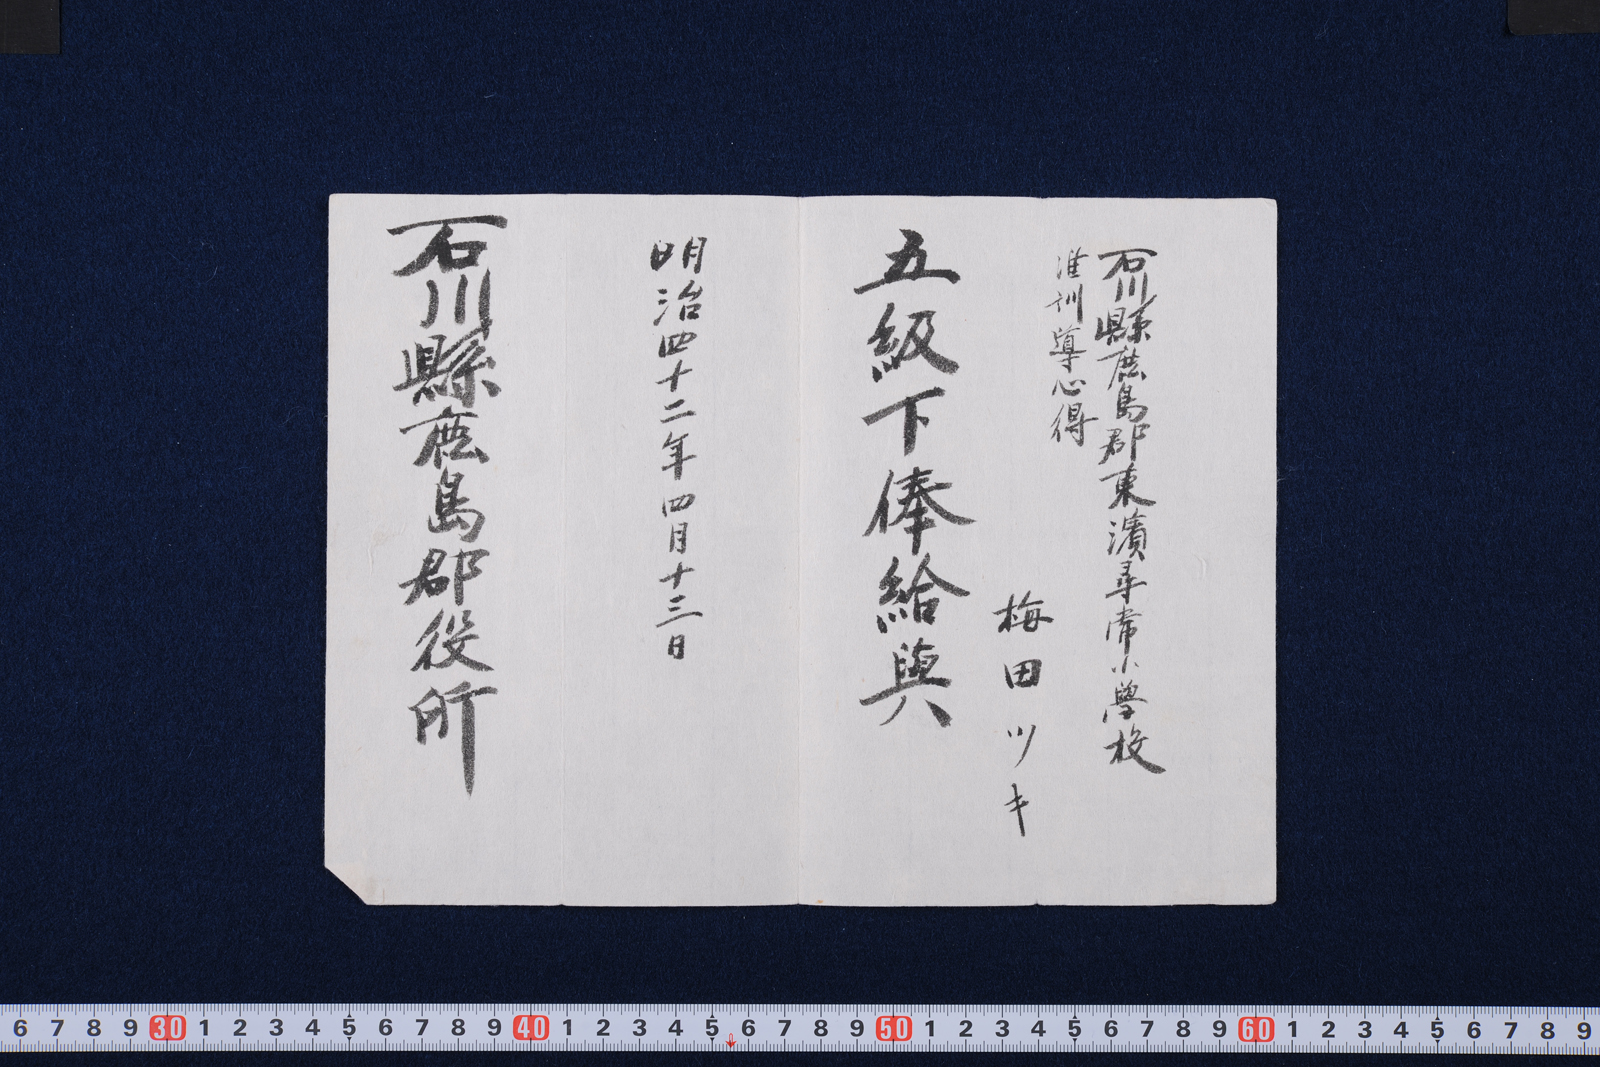 石川縣鹿島郡東濱尋常小學校
准訓導心得
梅田ツキ
五級下俸給與
明治四十二年四月十三日
石川縣鹿島郡役所
6 7 8 9 30 1 2 3 4 5 6 7 8 9 40 1 2 3 4 5 6 7 8 9 50 1 2 3 4 5 6 7 8 9 60 1 2 3 4 5 6 7 8 9